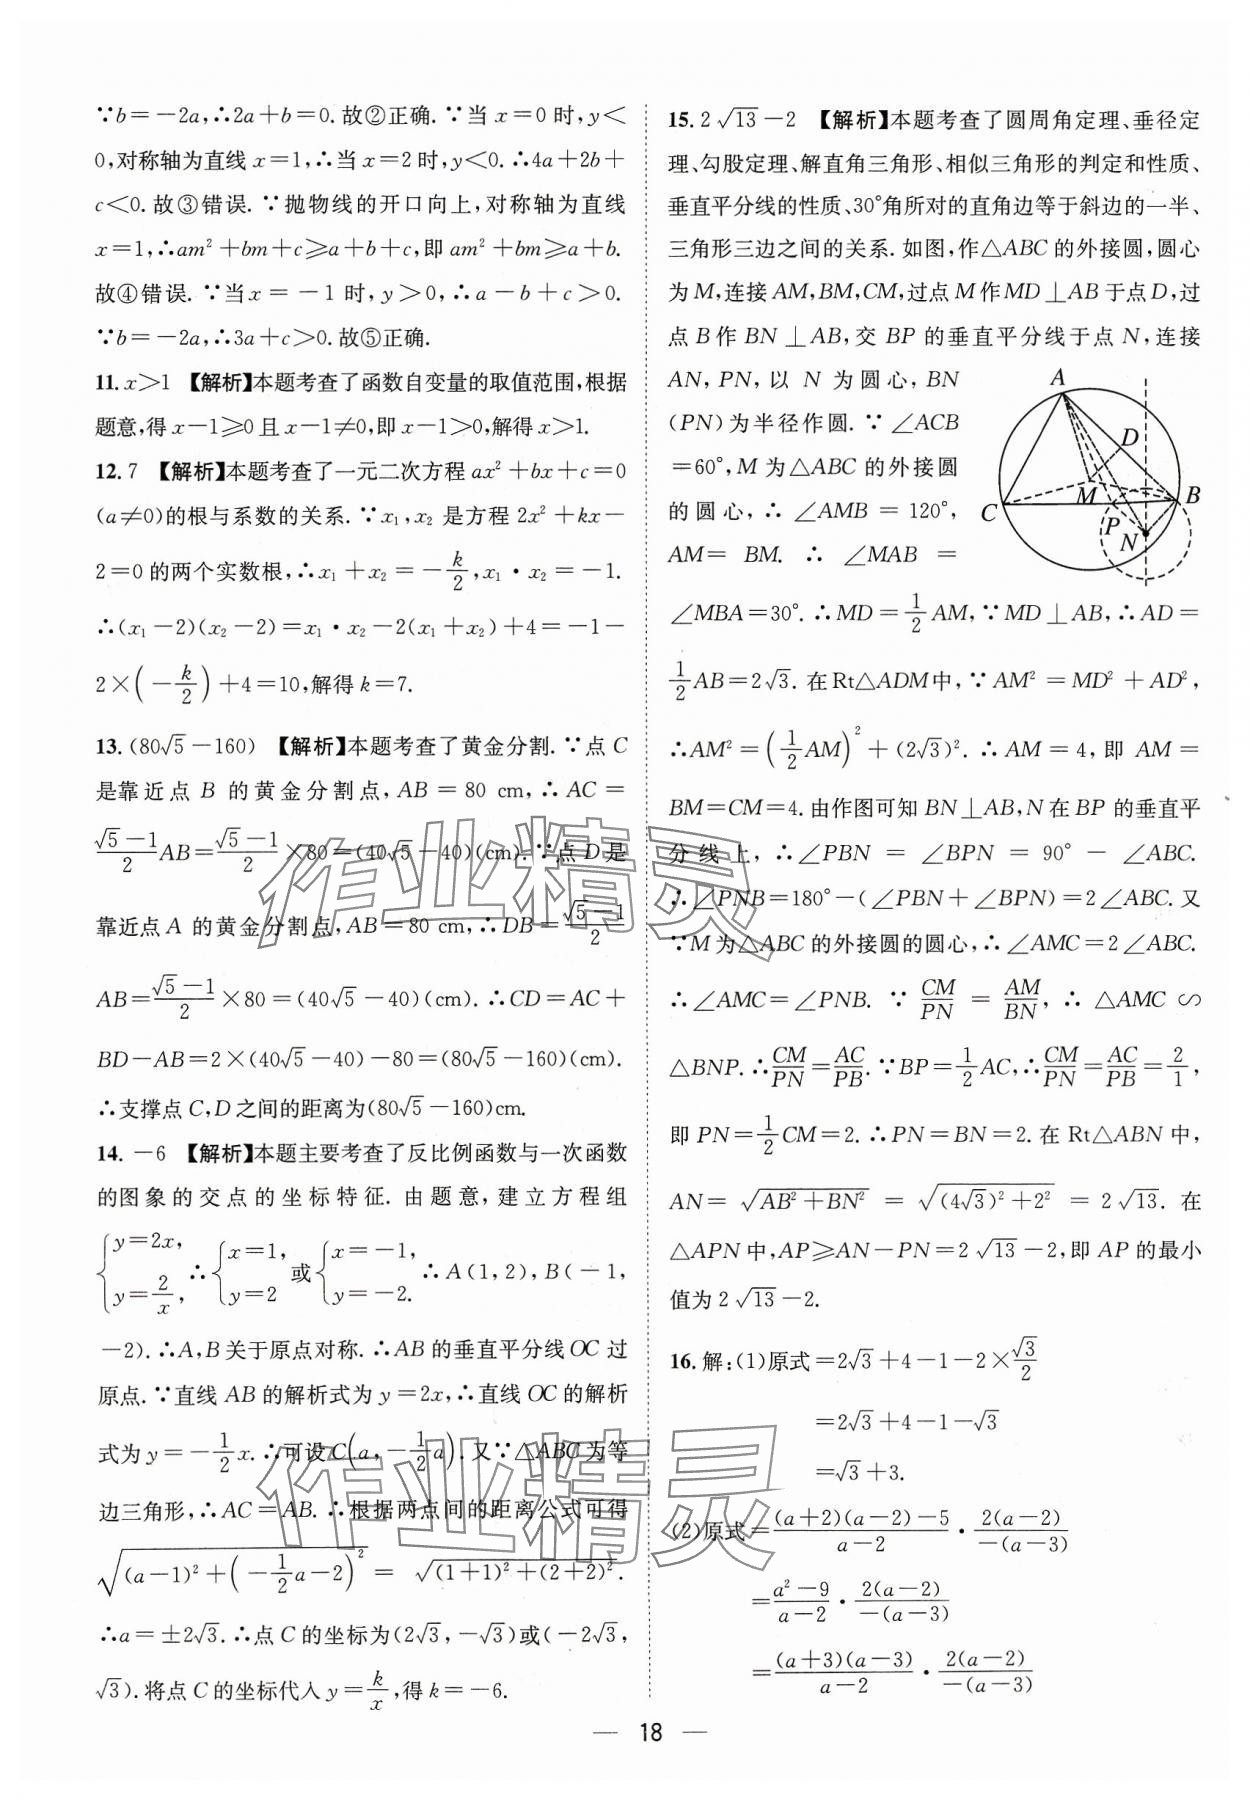 ∵b=-2a,∴2a+b=0.故②正确.∵当 x=0 时,y<
0,对称轴为直线 x=1,∴当 x=2 时,y<0.∴4a+2b+
c<0.故③错误.∵抛物线的开口向上,对称轴为直线
x=1,∴am²+bm+c≥a+b+c,即 am²+bm≥a+b.
故④错误.∵当 x=-1 时,y>0,∴a-b+c>0.
∵b=-2a,∴3a+c>0.故⑤正确.
11. x>1 【解析】本题考查了函数自变量的取值范围,根据
题意,得 x-1≥0 且 x-1≠0,即 x-1>0,解得 x>1.
12. 7 【解析】本题考查了一元二次方程 ax²+bx+c=0
(a≠0)的根与系数的关系.∵x₁,x₂ 是方程 2x²+kx-
2=0 的两个实数根,∴x₁+x₂=-k/2,x₁·x₂=-1.
∴(x₁-2)(x₂-2)=x₁·x₂-2(x₁+x₂)+4=-1-
2×(-k/2)+4=10,解得 k=7.
13. (80√5-160) 【解析】本题考查了黄金分割.∵点 C
是靠近点 B 的黄金分割点,AB=80 cm,∴AC=
(√5-1)/2 AB=(√5-1)/2×80=(40√5-40)(cm).∵点 D 是
靠近点 A 的黄金分割点,AB=80 cm,∴DB=(√5-1)/2
AB=(√5-1)/2×80=(40√5-40)(cm).∴CD=AC+
BD-AB=2×(40√5-40)-80=(80√5-160)(cm).
∴支撑点 C,D 之间的距离为(80√5-160)cm.
14. -6 【解析】本题主要考查了反比例函数与一次函数
的图象的交点的坐标特征.由题意,建立方程组
{y=2x, y=2/x, ∴{x=1, y=2 或{x=-1, y=-2. ∴A(1,2),B(-1,
-2).∴A,B 关于原点对称.∴AB 的垂直平分线 OC 过
原点.∵直线 AB 的解析式为 y=2x,∴直线 OC 的解析
式为 y=-1/2 x.∴可设 C(a,-1/2 a).又∵△ABC 为等
边三角形,∴AC=AB.∴根据两点间的距离公式可得
√((a-1)²+(-1/2 a-2)²)=√((1+1)²+(2+2)²).
∴a=±2√3.∴点 C 的坐标为(2√3,-√3)或(-2√3,
√3).将点 C 的坐标代入 y=k/x,得 k=-6.
15. 2√13-2 【解析】本题考查了圆周角定理、垂径定
理、勾股定理、解直角三角形、相似三角形的判定和性质、
垂直平分线的性质、30°角所对的直角边等于斜边的一半、
三角形三边之间的关系.如图,作△ABC 的外接圆,圆心
为 M,连接 AM,BM,CM,过点 M 作 MD⊥AB 于点 D,过
点 B 作 BN⊥AB,交 BP 的垂直平分线于点 N,连接
AN,PN,以 N 为圆心,BN
(PN)为半径作圆.∵∠ACB
=60°,M 为△ABC 的外接圆
的圆心,∴∠AMB=120°,
AM=BM.∴∠MAB=
A
D
M
B
C
P
N
∠MBA=30°.∴MD=1/2 AM,∵MD⊥AB,∴AD=
1/2 AB=2√3.在 Rt△ADM 中,∵AM²=MD²+AD²,
∴AM²=(1/2 AM)²+(2√3)².∴AM=4,即 AM=
BM=CM=4.由作图可知 BN⊥AB,N 在 BP 的垂直平
分线上,∴∠PBN=∠BPN=90°-∠ABC.
∴∠PNB=180°-(∠PBN+∠BPN)=2∠ABC.又
∵M 为△ABC 的外接圆的圆心,∴∠AMC=2∠ABC.
∴∠AMC=∠PNB.∵CM/PN=AM/BN,∴△AMC∽
△BNP.∴CM/PN=AC/PB.∵BP=1/2 AC,∴CM/PN=AC/PB=2/1,
即 PN=1/2 CM=2.∴PN=BN=2.在 Rt△ABN 中,
AN=√(AB²+BN²)=√((4√3)²+2²)=2√13.在
△APN 中,AP≥AN-PN=2√13-2,即 AP 的最小
值为 2√13-2.
16. 解:(1)原式=2√3+4-1-2×√3/2
=2√3+4-1-√3
=√3+3.
(2)原式=((a+2)(a-2)-5)/(a-2)·2(a-2)/(-(a-3))
=(a²-9)/(a-2)·2(a-2)/(-(a-3))
=((a+3)(a-3))/(a-2)·2(a-2)/(-(a-3))
— 18 —
作业精灵
作业精灵